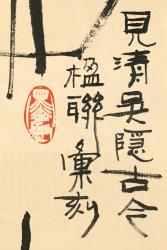 見清吳隱古今
楹聯彙刻